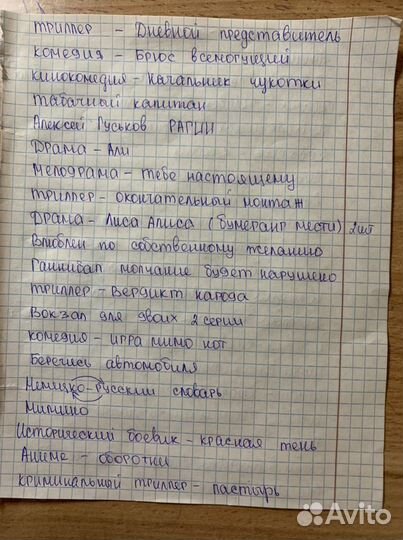 триллер – Дневной представитель
комедия – Брюс всемогущий
кинокомедия – начальник чукотки
табачный капитан
Алексей Гуськов РАГИН
Драма – Али
мелодрама – тебе настоящему
триллер – окончательный монтаж
Драма – Лиса Алиса (бумеранг мести) 2шт
Влюблен по собственному желанию
Ганнибал молчание будет нарушено
триллер – Вердикт народа
Вокзал для двоих 2 серии
комедия – игра мимо нот
Берегись автомобиля
Немецко-русский словарь
Мимино
Исторический боевик – красная тень
Аниме – оборотни
криминальный триллер – пастырь
Avito